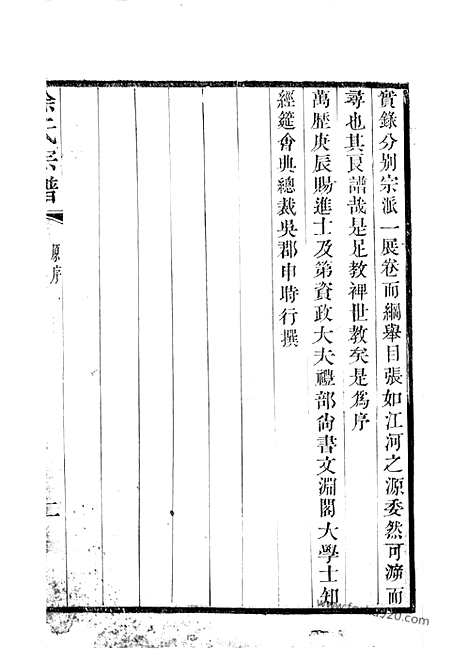 實錄分别宗派一展卷而綱舉目張如江河之源委然可泝而
尋也其良譜哉是足教裨世教矣是爲序
萬歷庚辰賜進士及第資政大夫禮部尙書文淵閣大學士知
經筵會典總裁吳郡申時行撰
徐氏宗譜
原序